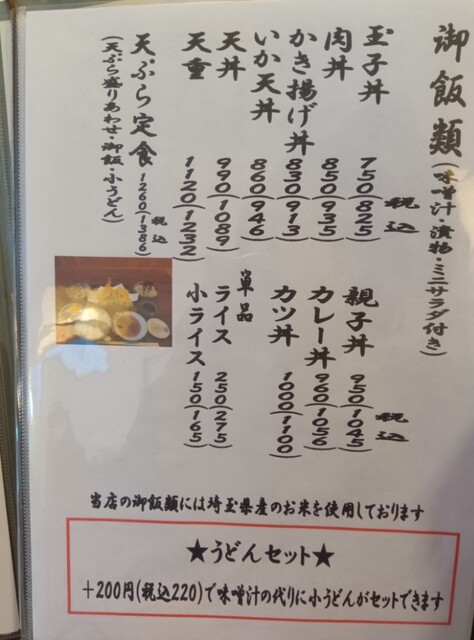 御飯類(味噌汁・漬物・ミニサラダ付き)
税込
玉子丼 750(825)
肉丼 850(935)
かき揚げ丼 830(913)
いか天丼 860(946)
天丼 990(1089)
天重 1120(1232)
税込
天ぷら定食 1260(1386)
(天ぷら盛りあわせ・御飯・小うどん)
税込
親子丼 950(1045)
カレー丼 960(1056)
カツ丼 1000(1100)
単品
ライス 250(275)
小ライス 150(165)
当店の御飯類には埼玉県産のお米を使用しております
★うどんセット★
+200円(税込220)で味噌汁の代りに小うどんがセットできます